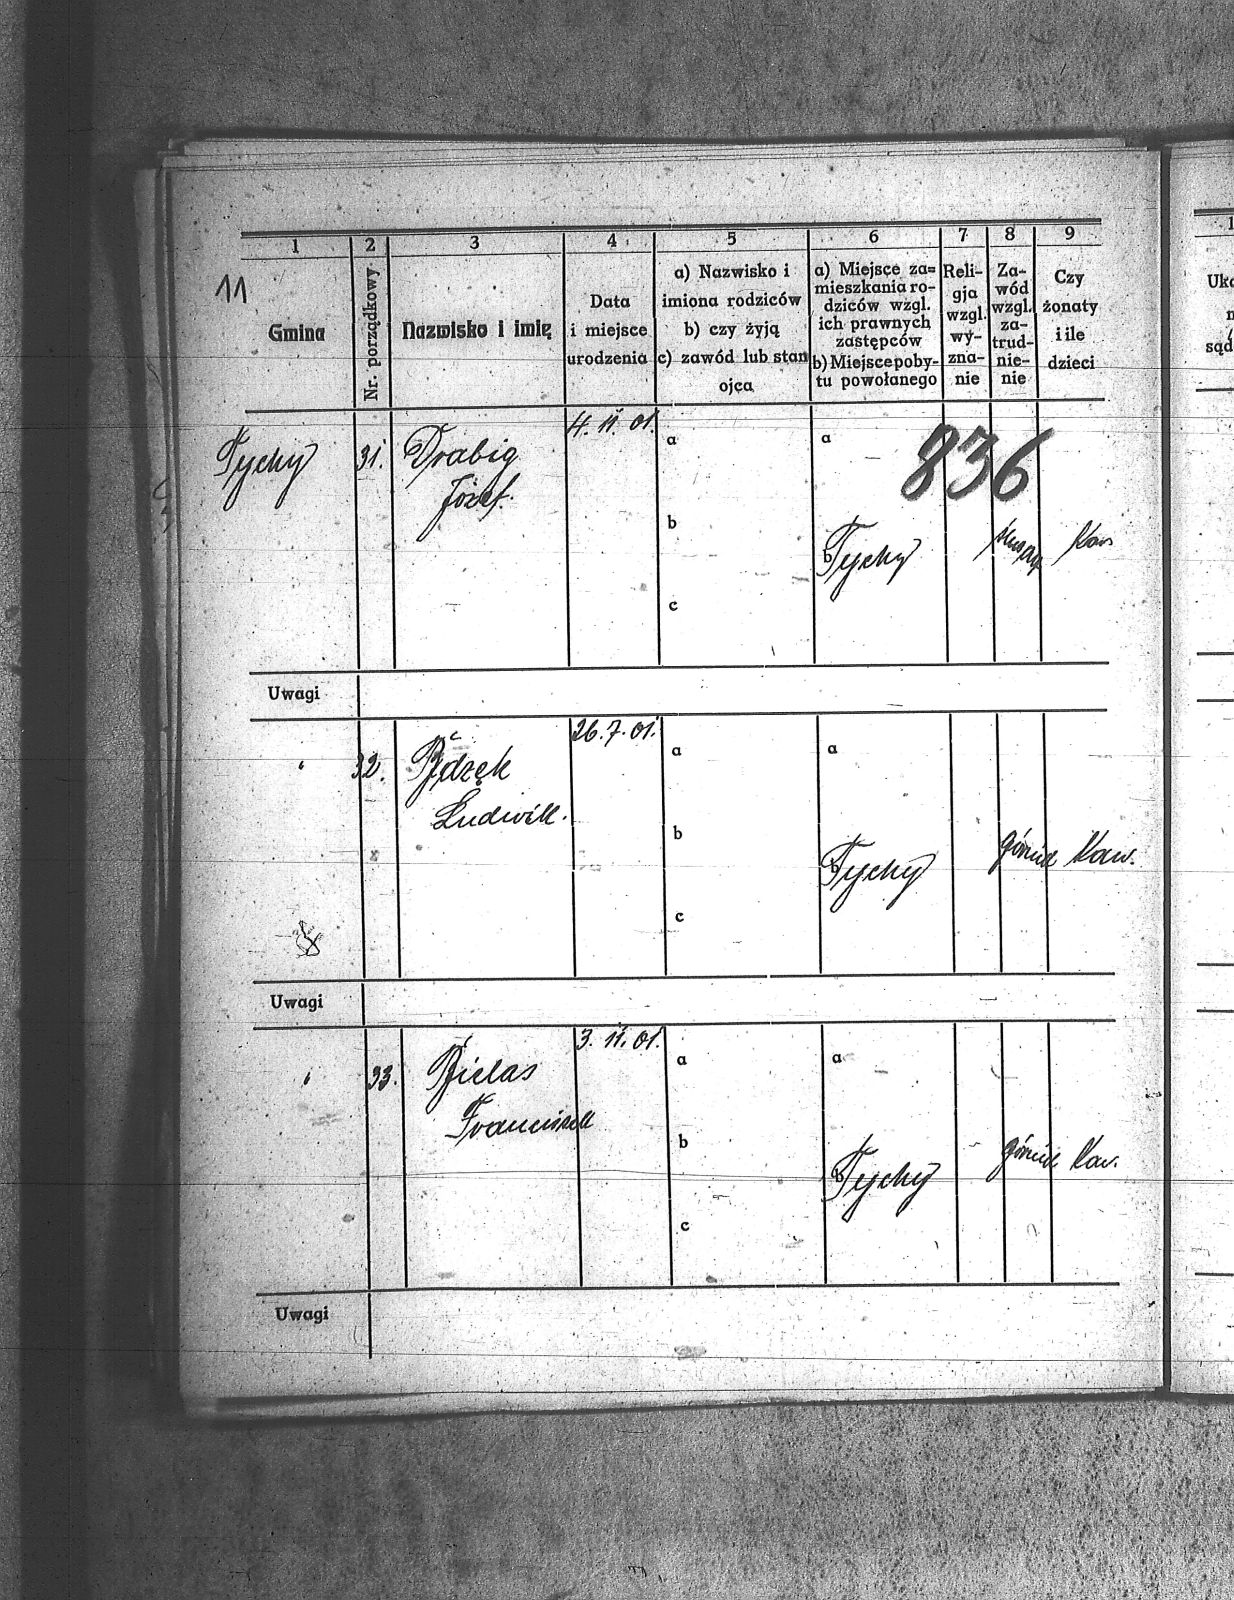 11
1 2 3 4 5 6 7 8 9
Gmina
Nr. porządkowy
Nazwisko i imię
Data
i miejsce
urodzenia
a) Nazwisko i
imiona rodziców
b) czy żyją
c) zawód lub stan
ojca
a) Miejsce za=
mieszkania ro-
dziców wzgl.
ich prawnych
zastępców
b) Miejsce poby-
tu powołanego
Reli-
gja
wzgl.
wy-
zna-
nie
Za-
wód
wzgl.
za-
trud-
nie-
nie
Czy
żonaty
i ile
dzieci
836
Tychy 31. Drabig 4. 11. 01. a a
Józef.
b b Tychy
c
Uwagi
" 32. 26. 7. 01. a a
Ludwik.
b b Tychy górnik kaw.
c
Uwagi
" 33. Bielas 3. 11. 01. a a
Franciszek
b b Tychy górnik kaw.
c
Uwagi
1